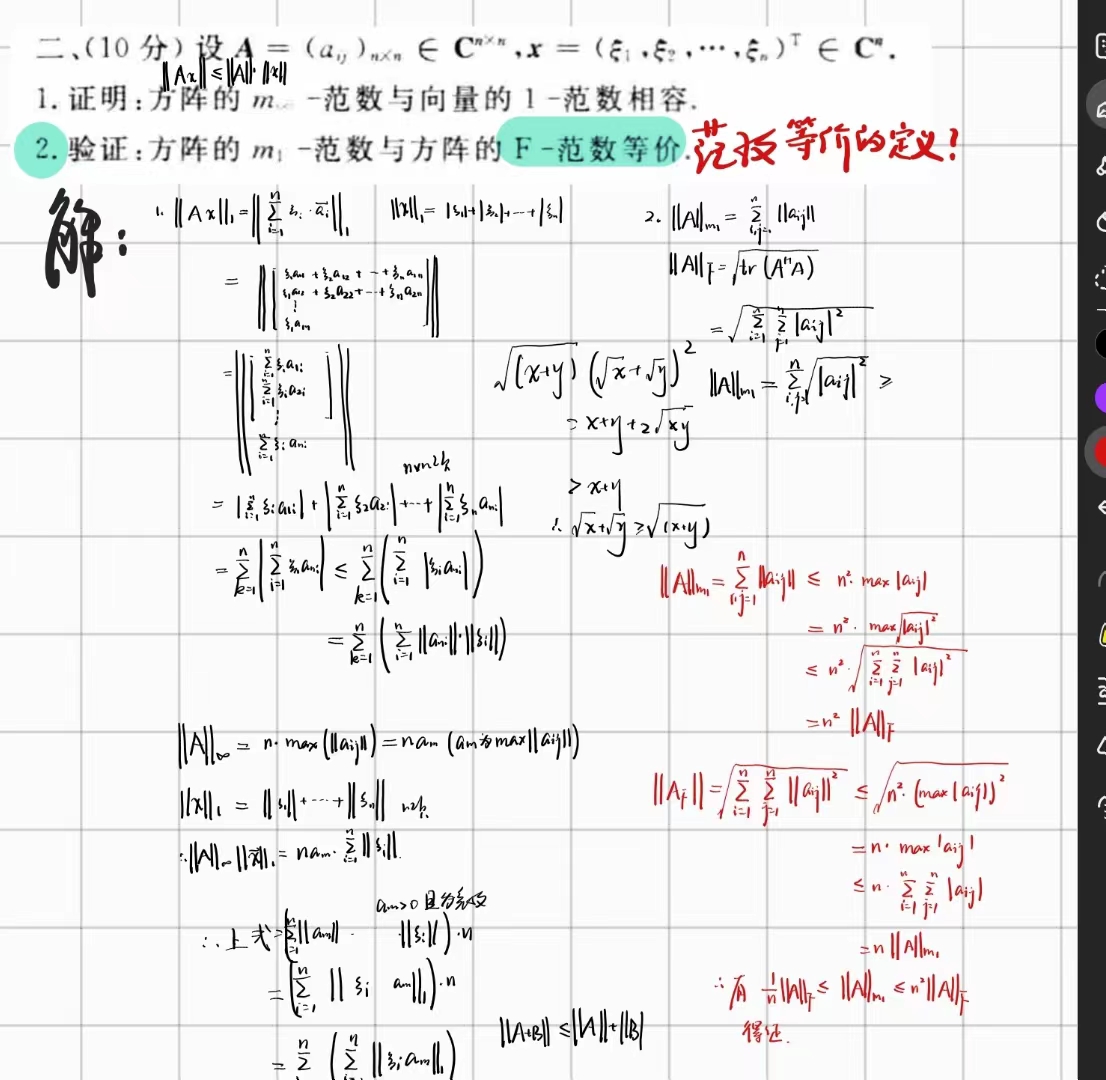 二、(10 分) 设 A = (a_{ij})_{n×n} ∈ C^{n×n}, x = (ξ₁, ξ₂, ⋯, ξₙ)^T ∈ C^n.
‖Ax‖ ≤ ‖A‖·‖x‖
1. 证明:方阵的 m -范数与向量的 1-范数相容.
2. 验证:方阵的 m₁ -范数与方阵的 F-范数等价.
范数等价的定义!
解:
1. ‖Ax‖₁ = ‖∑_{i=1}^{n} ξᵢ · a⃗ᵢ‖₁ ‖x‖₁ = |ξ₁|+|ξ₂|+⋯+|ξₙ|
= ‖[ξ₁a₁₁ + ξ₂a₁₂ + ⋯ + ξₙa₁ₙ
ξ₁a₁₂ + ξ₂a₂₂ + ⋯ + ξₙa₂ₙ
⋮
ξ₁aₙ
= ‖[∑_{i=1}^{n} ξᵢa₁ᵢ
∑_{i=1}^{n} ξᵢa₂ᵢ
⋮
∑_{i=1}^{n} ξᵢaₙᵢ]‖
= |∑_{i=1}^{n} ξᵢa₁ᵢ| + |∑_{i=1}^{n} ξ₂a₂ᵢ| + ⋯ + |∑_{i=1}^{n} ξₙaₙᵢ|
= ∑_{k=1}^{n} |∑_{i=1}^{n} ξₙaₙᵢ| ≤ ∑_{k=1}^{n} (∑_{i=1}^{n} |ξᵢaₙᵢ|)
= ∑_{k=1}^{n} (∑_{i=1}^{n} ‖aₙᵢ‖·‖ξᵢ‖)
‖A‖_∞ = n·max(‖a_{ij}‖) = na_m (a_m为max‖a_{ij}‖)
‖x‖₁ = ‖ξ₁‖ + ⋯ + ‖ξₙ‖ n次
∴ ‖A‖_∞‖x⃗‖₁ = na_m · ∑_{i=1}^{n} ‖ξᵢ‖.
a_m>0 且为常数
∴ 上式 = (∑_{i=1}^{n} ‖a_m‖ · ‖ξᵢ‖)·n
= (∑_{i=1}^{n} ‖ξᵢ a_m‖₁)·n
= ∑^{n} (∑^{n} ‖ξᵢa_m‖₁)
‖A+B‖ ≤ ‖A‖+‖B‖
2. ‖A‖_{m₁} = ∑_{i,j=1}^{n} ‖a_{ij}‖
‖A‖_F = √(tr(A^H A))
= √(∑_{i=1}^{n} ∑_{j=1}^{n} |a_{ij}|²)
‖A‖_{m₁} = ∑_{i,j=1}^{n} √(|a_{ij}|²) ≥
√(x+y) (√x+√y)²
= x+y+2√(xy)
> x+y
∴ √x+√y ≥ √(x+y)
‖A‖_{m₁} = ∑_{i,j=1}^{n} ‖a_{ij}‖ ≤ n²·max|a_{ij}|
= n²·max√(|a_{ij}|²)
≤ n²·√(∑_{i=1}^{n} ∑_{j=1}^{n} |a_{ij}|²)
= n² ‖A‖_F
‖A_F‖ = √(∑_{i=1}^{n} ∑_{j=1}^{n} ‖a_{ij}‖²) ≤ √(n²·(max|a_{ij}|)²)
= n·max|a_{ij}|
≤ n·∑_{i=1}^{n} ∑_{j=1}^{n} |a_{ij}|
= n‖A‖_{m₁}
∴ 有 1/n ‖A‖_F ≤ ‖A‖_{m₁} ≤ n²‖A‖_F
得证.